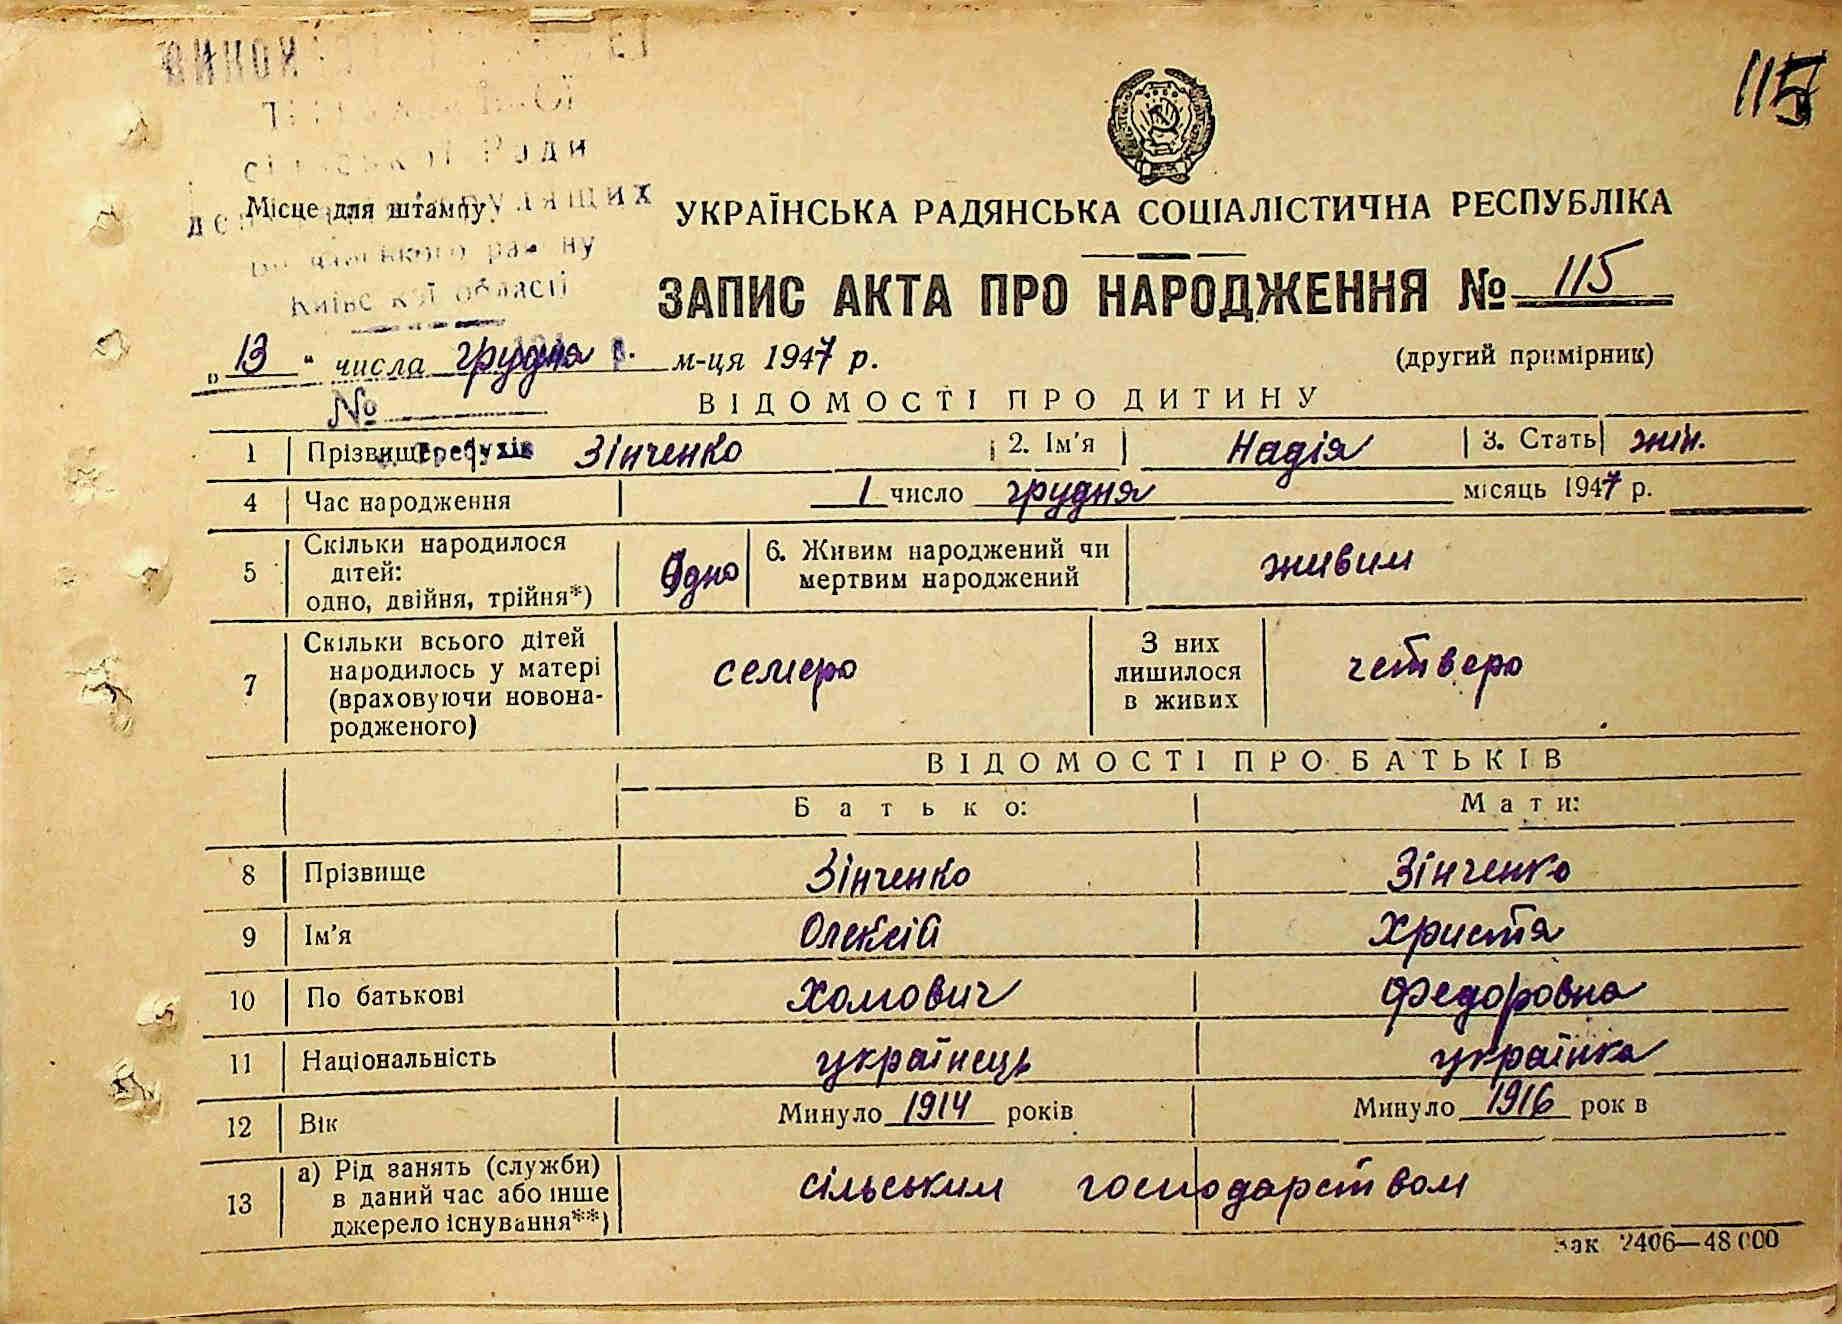 115
сільської Ради
Місце для штампу
УКРАЇНСЬКА РАДЯНСЬКА СОЦІАЛІСТИЧНА РЕСПУБЛІКА
району
Київської області
ЗАПИС АКТА ПРО НАРОДЖЕННЯ № 115
„13“ числа грудня м-ця 1947 р.
(другий примірник)
№
ВІДОМОСТІ ПРО ДИТИНУ
1 Прізвище Зінченко 2. Ім'я Надія 3. Стать жін.
4 Час народження 1 число грудня місяць 1947 р.
5 Скільки народилося
дітей:
одно, двійня, трійня*)
Одно
6. Живим народжений чи
мертвим народжений
живим
7 Скільки всього дітей
народилось у матері
(враховуючи новона-
родженого)
семеро
З них
лишилося
в живих
четверо
ВІДОМОСТІ ПРО БАТЬКІВ
Батько: Мати:
8 Прізвище Зінченко Зінченко
9 Ім'я Олексій Христя
10 По батькові Хомович Федоровна
11 Національність українець українка
12 Вік Минуло 1914 років Минуло 1916 рок в
13 а) Рід занять (служби)
в даний час або інше
джерело існування**)
сільським господарством
Зак 2406—48 000